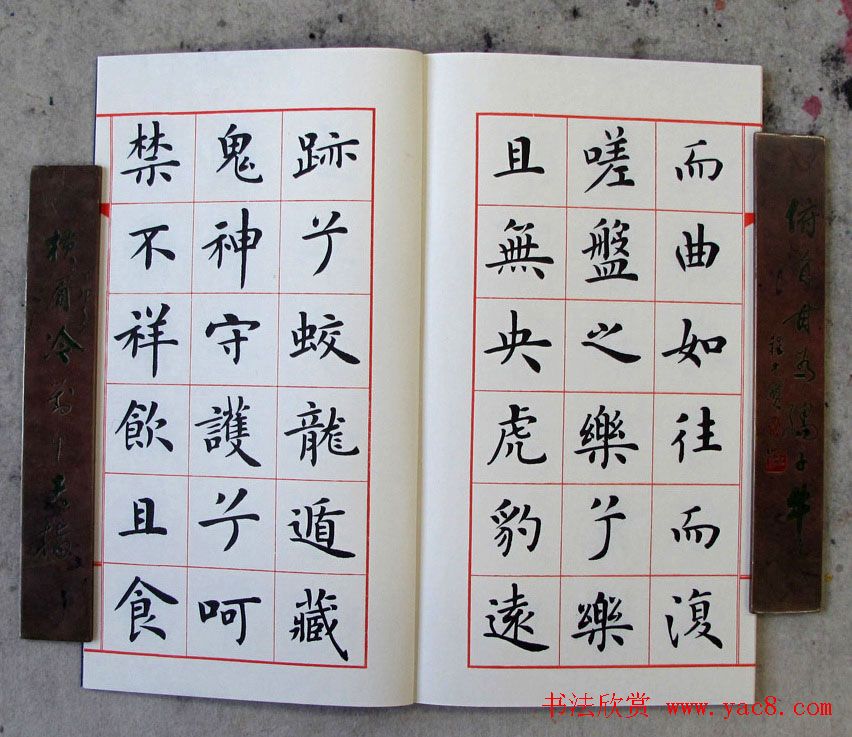 而曲如往而復
嗟盤之樂兮樂
且無央虎豹遠
跡兮蛟龍遁藏
鬼神守護兮呵
禁不祥飲且食
书法欣赏 www.yac8.com